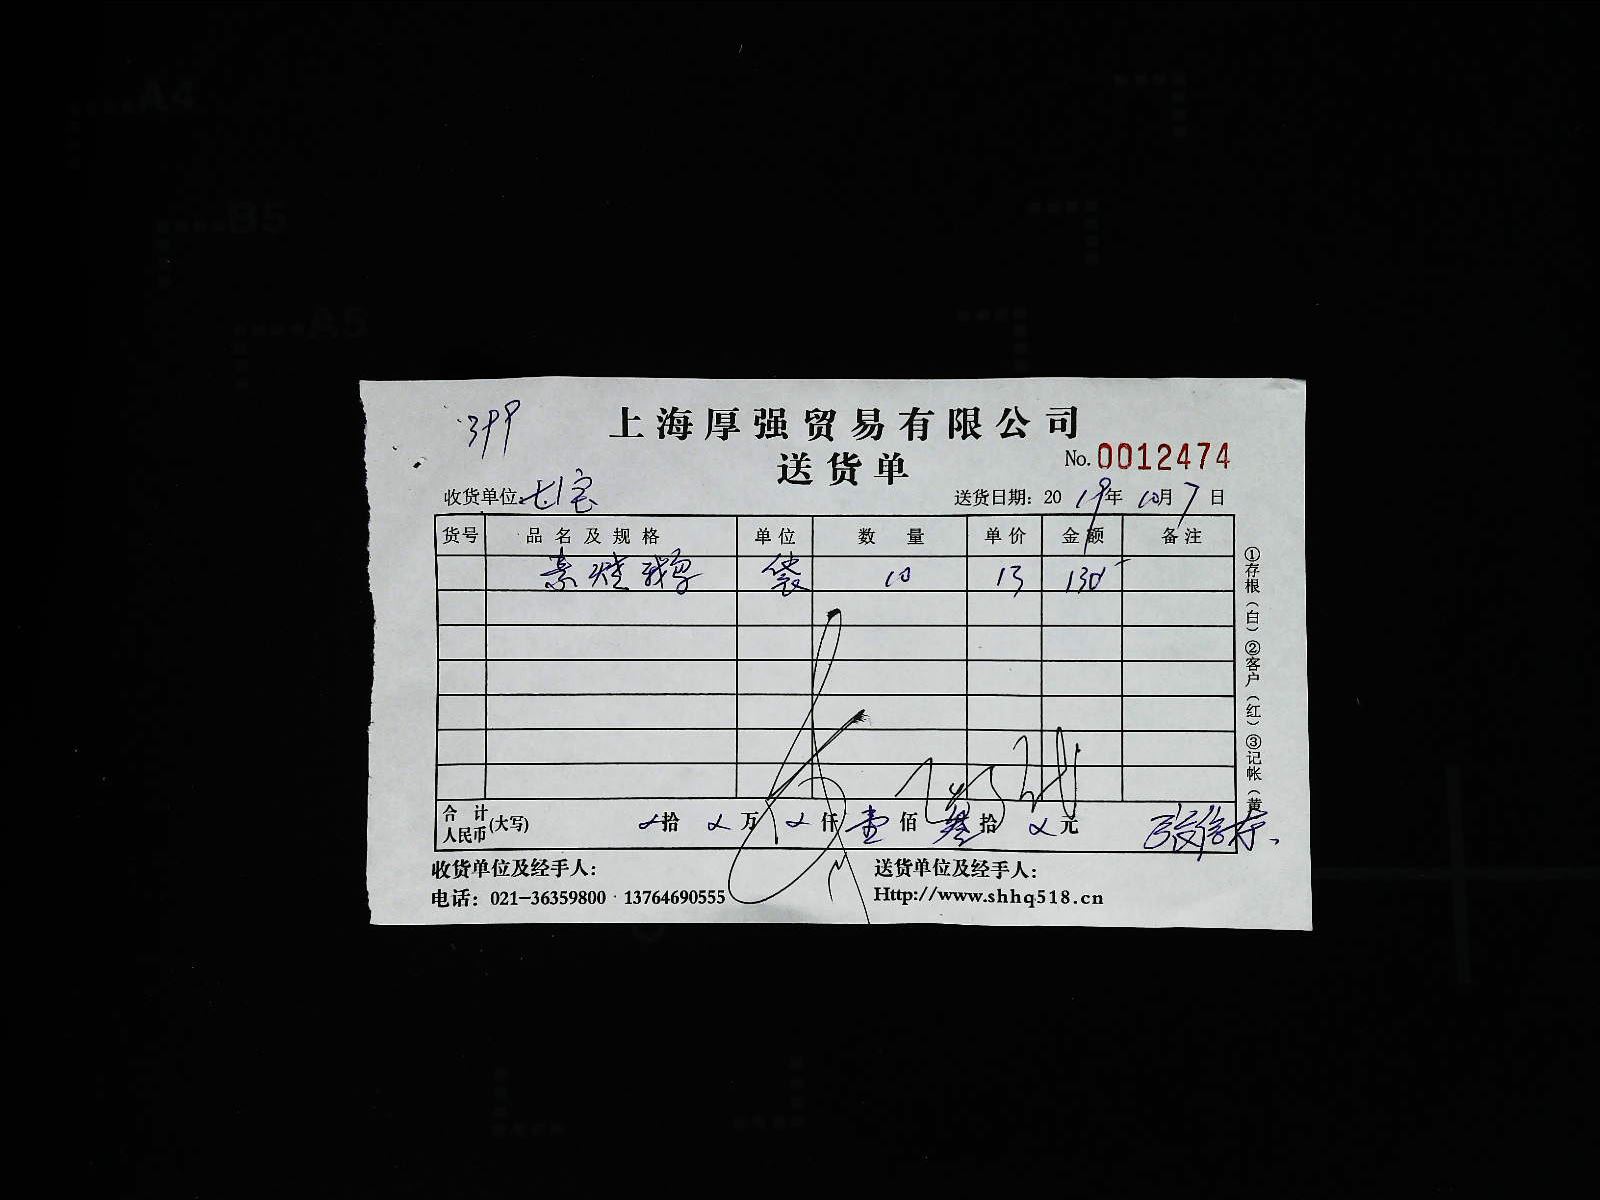 A4
B5
A5
399
上海厚强贸易有限公司
送货单
No. 0012474
收货单位: 七宝
送货日期: 2019年10月7日
货号 品名及规格 单位 数量 单价 金额 备注
素烧鹅 袋 10 13 130
合计人民币(大写) 拾 万 仟 壹佰 叁拾 元
收货单位及经手人:
送货单位及经手人:
电话: 021-36359800 · 13764690555
Http://www.shhq518.cn
①存根(白)②客户(红)③记帐(黄